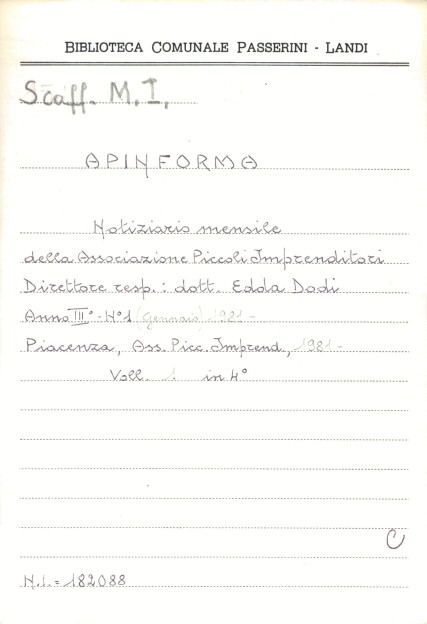 BIBLIOTECA COMUNALE PASSERINI - LANDI
Scaff. M.I,
APINFORMA
Notiziario mensile
della Associazione Piccoli Imprenditori
Direttore resp.: dott. Edda Dodi
Anno III° - N°1 (Gennaio) 1981 -
Piacenza, Ass. Picc. Imprend., 1981 -
Voll. 1. in 4°
C
N.I. = 182088